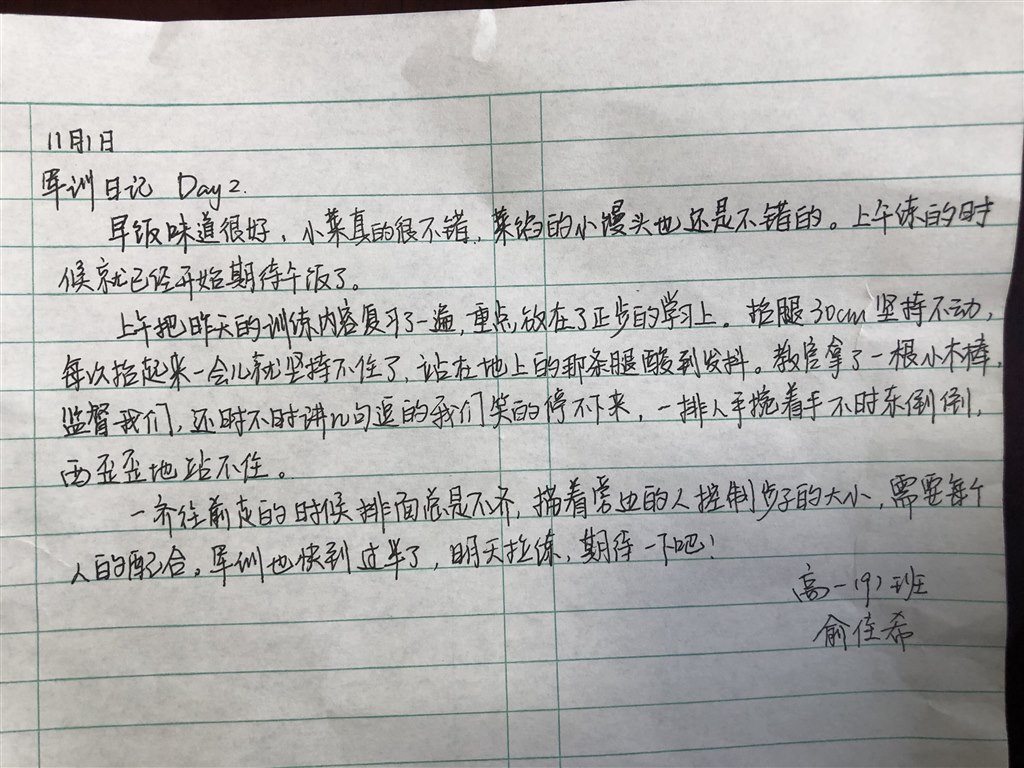 11月1日
军训日记 Day 2.
早饭味道很好，小菜真的很不错，菜馅的小馒头也还是不错的。上午练的时
候就已经开始期待午饭了。
上午把昨天的训练内容复习了一遍，重点放在了正步的学习上。抬腿30cm坚持不动，
每次抬起来一会儿就坚持不住了，站在地上的那条腿酸到发抖。教官拿了一根小木棒，
监督我们，还时不时讲几句逗的我们笑的停不下来，一排人手挽着手不时东倒倒，
西歪歪地站不住。
一齐往前走的时候排面总是不齐，揣着旁边的人控制步子的大小，需要每个
人的配合。军训也快到过半了，明天拉练，期待一下吧！
高一(9)班
俞佳希